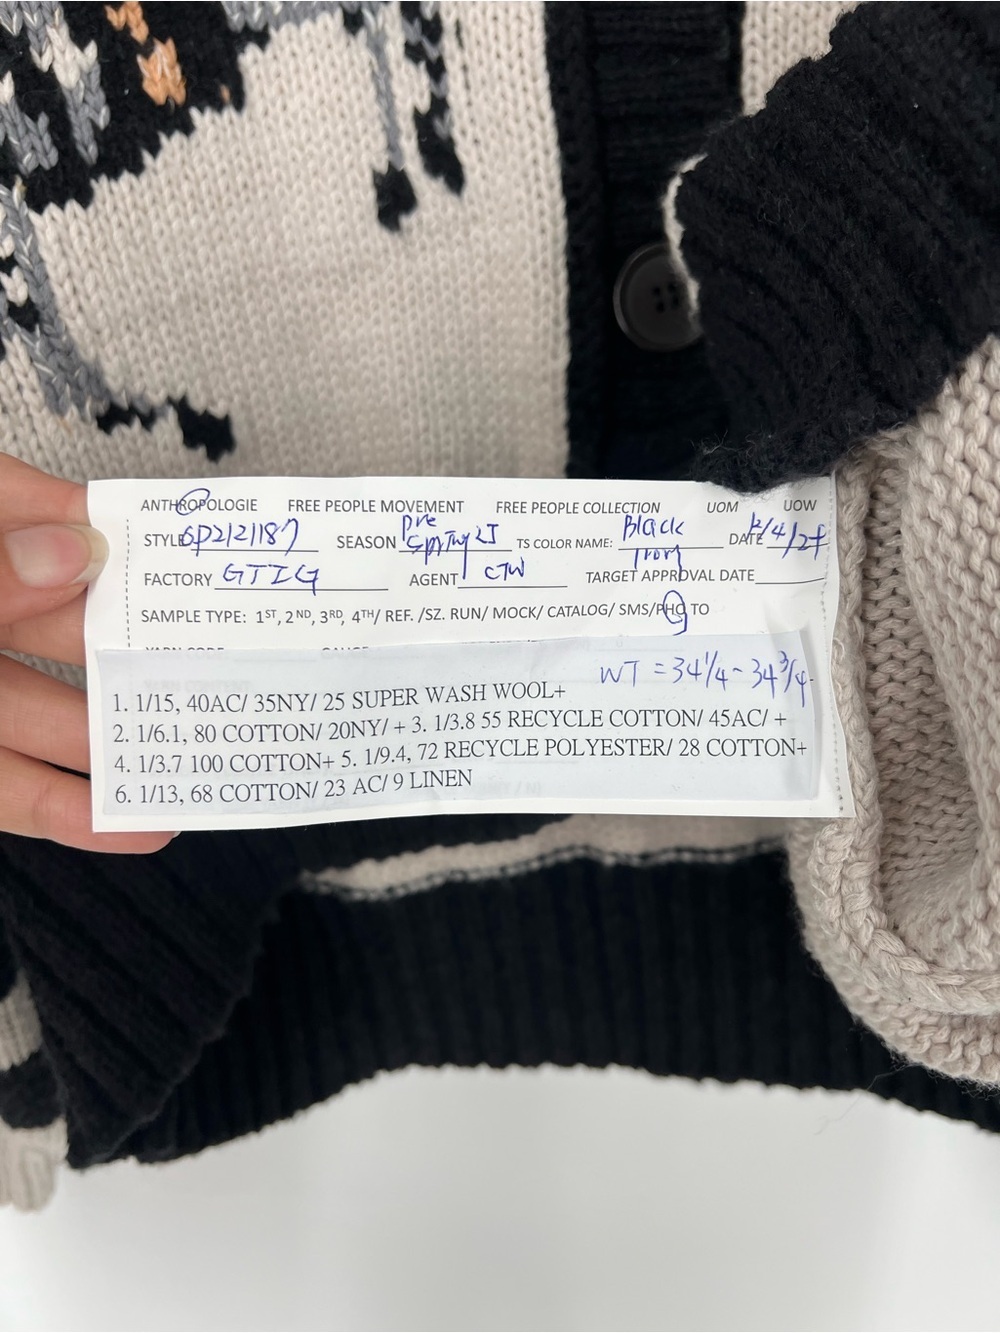 ANTHROPOLOGIE FREE PEOPLE MOVEMENT FREE PEOPLE COLLECTION UOM UOW
STYLE SEASON Pre Spring TS COLOR NAME: Black Ivory DATE
FACTORY GTIG AGENT CTW TARGET APPROVAL DATE
SAMPLE TYPE: 1ST, 2ND, 3RD, 4TH/ REF. /SZ. RUN/ MOCK/ CATALOG/ SMS/PHO TO
WT = 34 1/4 - 34 3/4
1. 1/15, 40AC/ 35NY/ 25 SUPER WASH WOOL+
2. 1/6.1, 80 COTTON/ 20NY/ + 3. 1/3.8 55 RECYCLE COTTON/ 45AC/ +
4. 1/3.7 100 COTTON+ 5. 1/9.4, 72 RECYCLE POLYESTER/ 28 COTTON+
6. 1/13, 68 COTTON/ 23 AC/ 9 LINEN